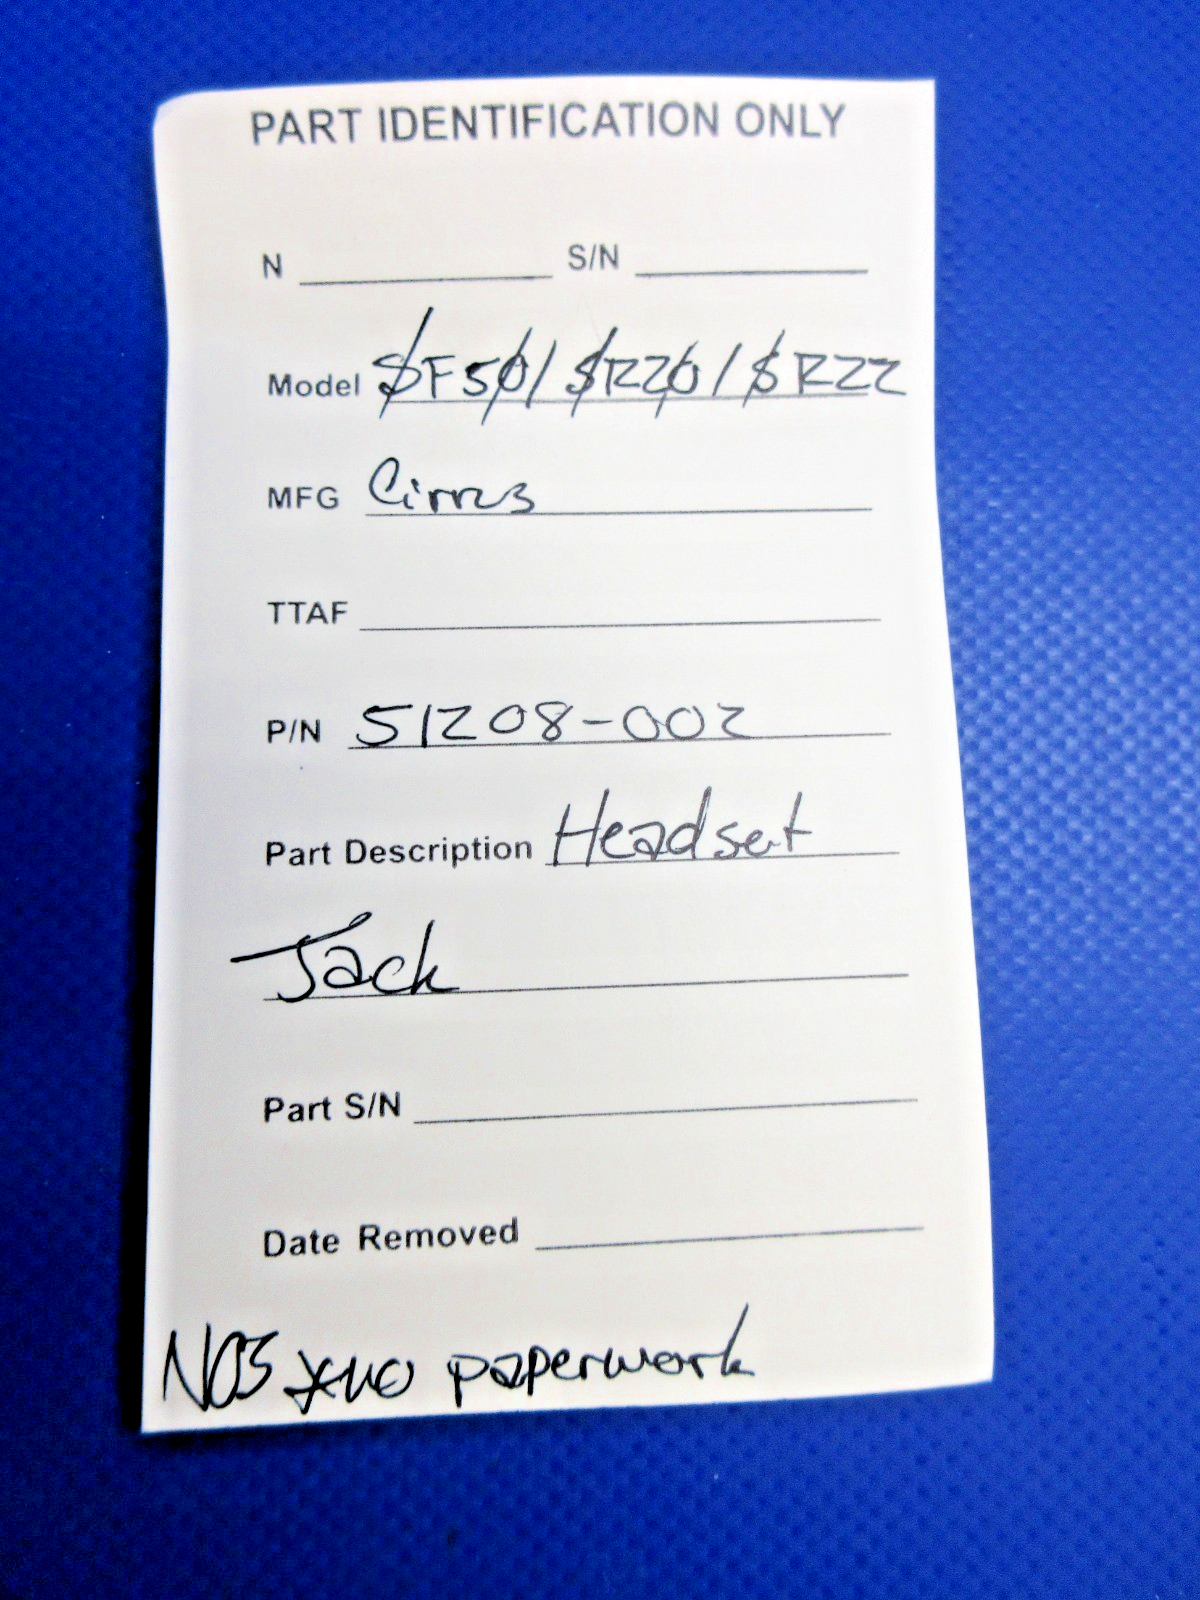 PART IDENTIFICATION ONLY
N S/N
Model SF50/SR20/SR22
MFG Cirrus
TTAF
P/N 51208-002
Part Description Headset
Jack
Part S/N
Date Removed
NOS *no paperwork